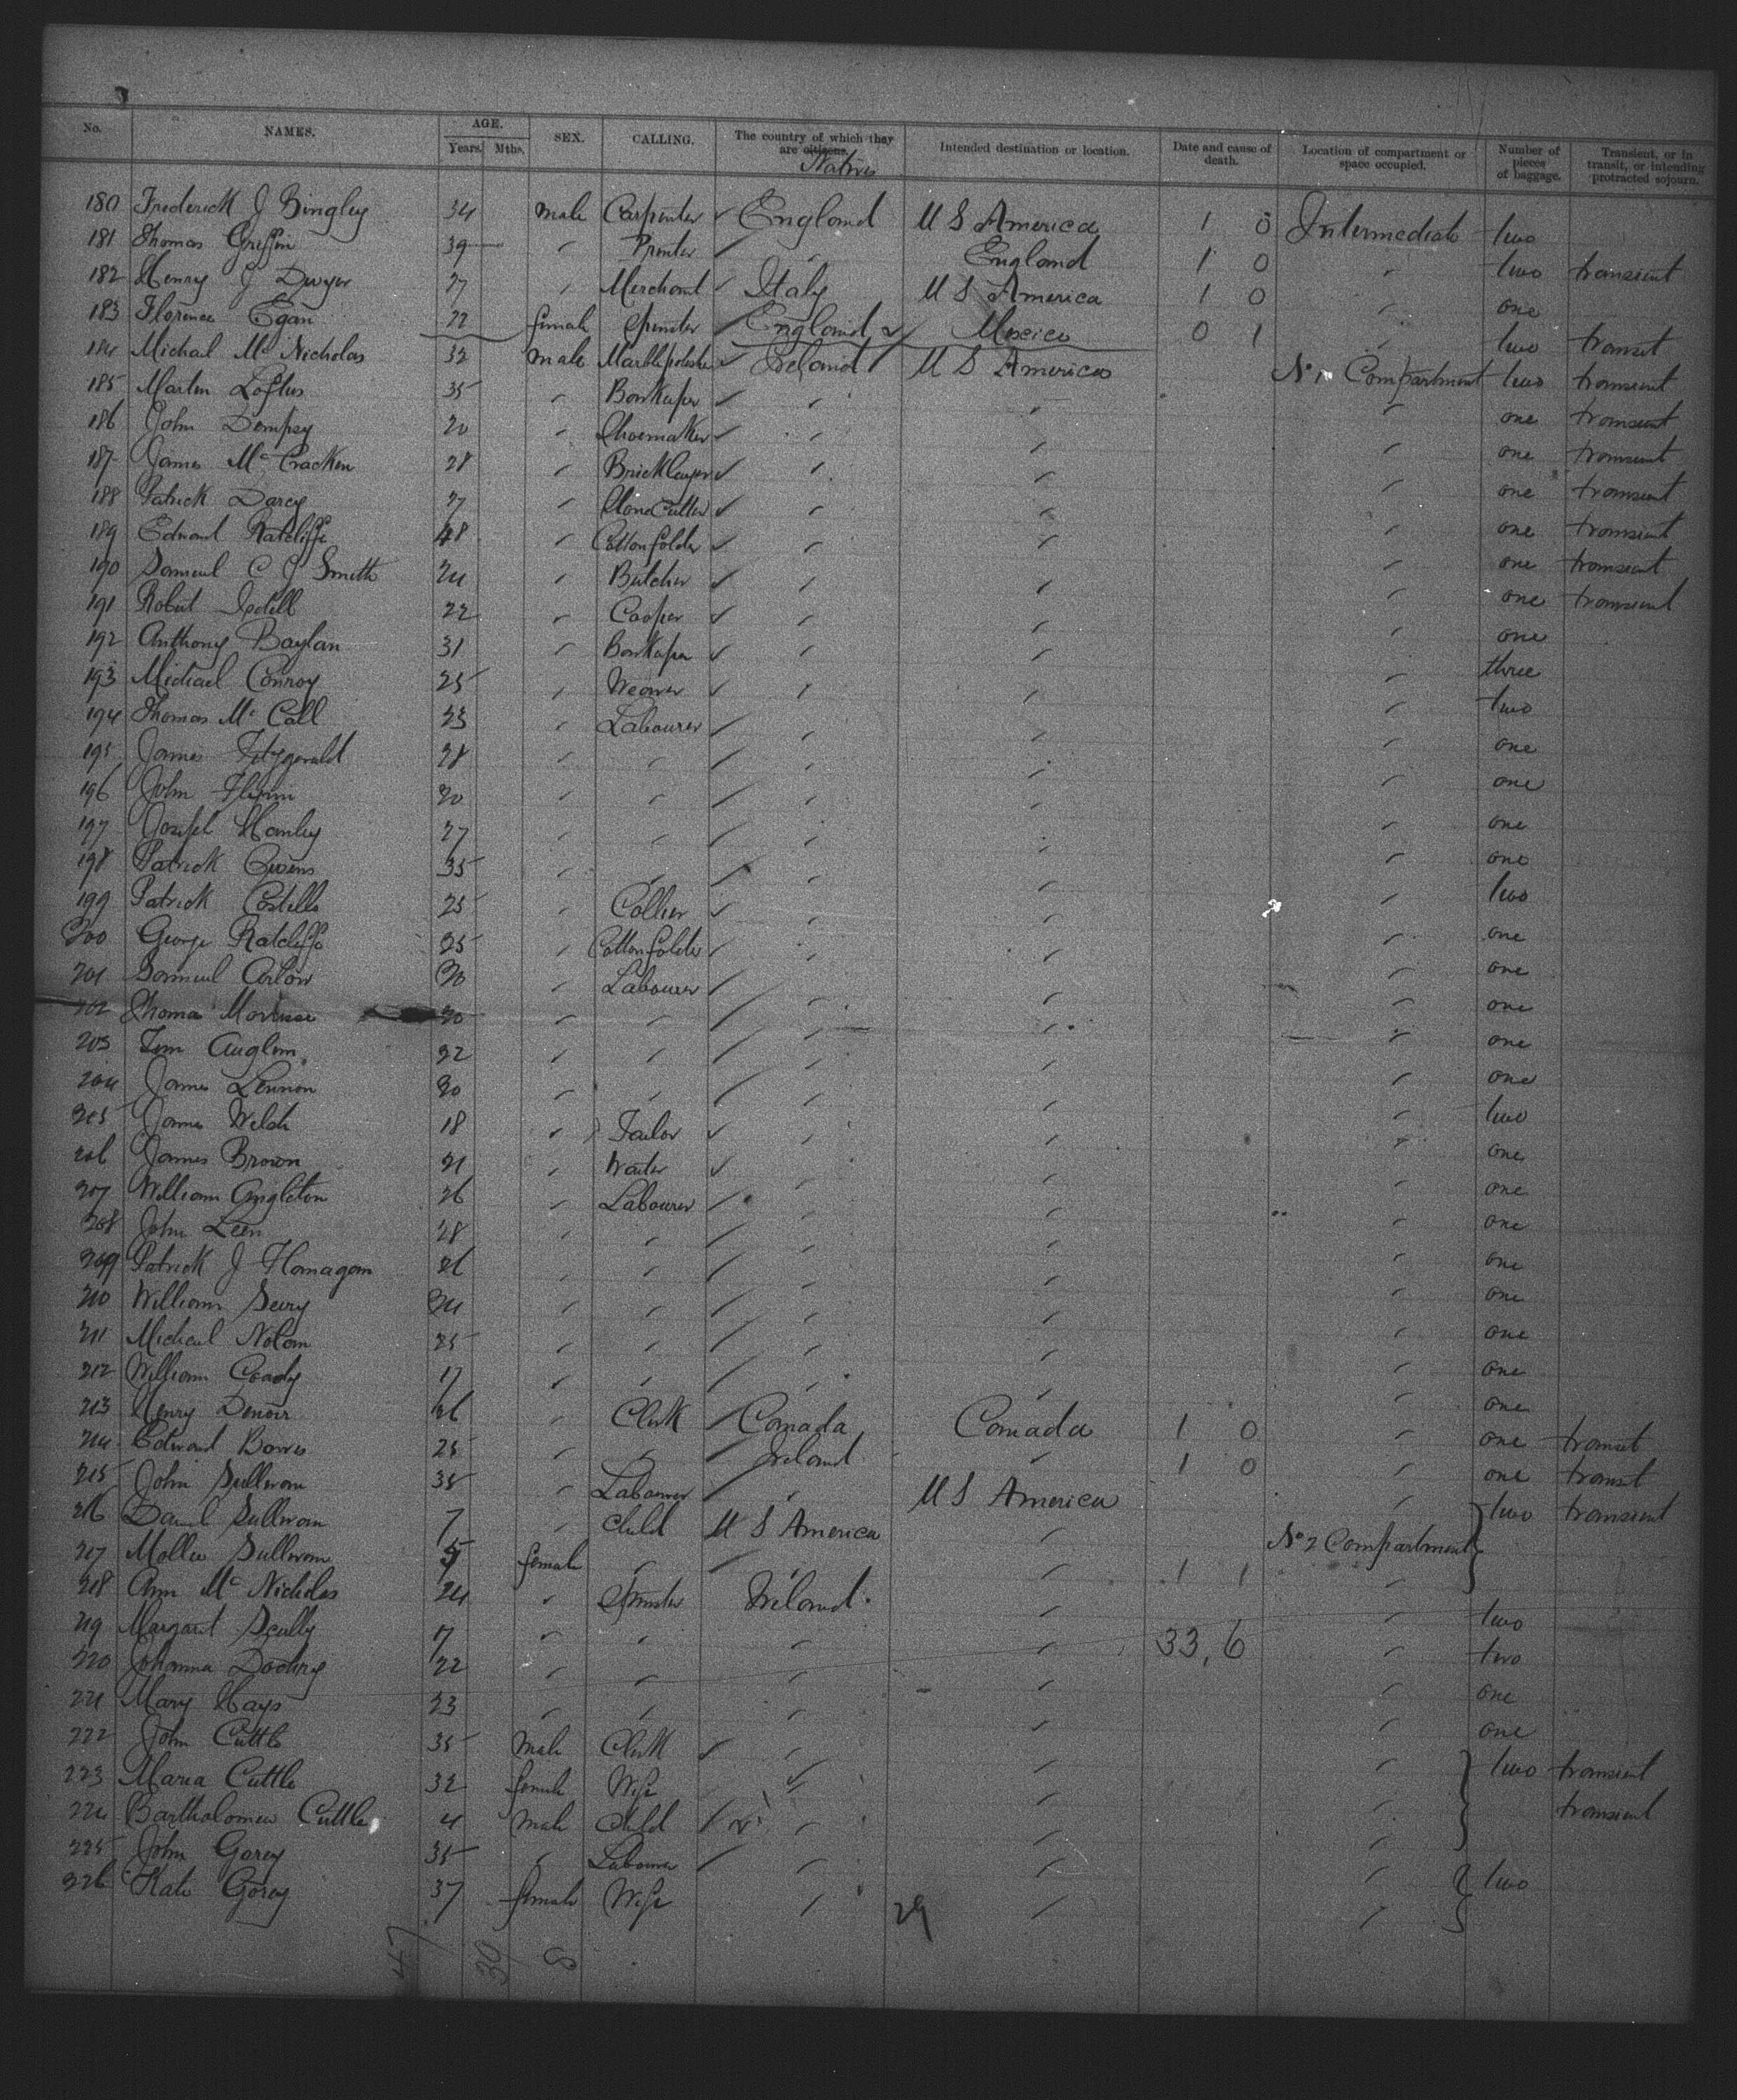 No. NAMES. AGE. Years. Mths. SEX. CALLING. The country of which they are citizens. Natives Intended destination or location. Date and cause of death. Location of compartment or space occupied. Number of pieces of baggage. Transient, or in transit, or intending protracted sojourn.
180 Frederick J Bingley 34 male Carpenter ✓ England U S America 1 0 Intermediate two
181 Thomas Griffin 39 " Printer " England 1 0 " two transient
182 Henry J Dwyer 27 " Merchant ✓ Italy U S America 1 0 " one
183 Florence Egan 22 female Spinster England Mexico 0 1 " two transit
184 Michal Mc Nicholas 32 male Marblepolisher ✓ Ireland U S America No 1 Compartment two transient
185 Martin Loftus 35 " ✓ " " " one transient
186 John Dempsy 20 " Shoemaker ✓ " " " one transient
187 James Mc Cracken 28 " Bricklayer ✓ " " " one transient
188 Patrick Darcy 27 " Stone Cutter ✓ " " " one transient
189 Edward Ratcliffe 48 " Cotton folder ✓ " " " one transient
190 Samuel C J Smith 24 " Butcher ✓ " " " one transient
191 Robert 22 " Cooper ✓ " " " one
192 Anthony Baylan 31 " ✓ " " " three
193 Michael Conroy 25 " Weaver ✓ " " " two
194 Thomas Mc Call 23 " Labourer " " " one
195 James Fitzgerald 28 " " " " " one
196 John Flynn 20 " " " " " one
197 Joseph Hanley 27 " " " " " one
198 Patrick Owens 35 " " " " " two
199 Patrick Costello 25 " Collier ✓ " " " one
200 George Ratcliffe 25 " Cotton folder " " " one
201 Samuel Arlow 30 " Labourer " " " one
202 Thomas 20 " " " " " one
203 Tom Anglim 22 " " " " " one
204 James Lennon 20 " " " " " two
205 James Welsh 18 " Tailor ✓ " " " one
206 James Brown 21 " Waiter ✓ " " " one
207 William Angleton 26 " Labourer " " " one
208 John Leen 28 " " " " " one
209 Patrick J Flanagan 26 " " " " " one
210 William Seery 24 " " " " " one
211 Michael Nolan 25 " " " " " one
212 William Coady 17 " " " " " one
213 Henry Denoir 26 " Clerk Canada Canada 1 0 " one transit
214 Edward Bowes 25 " " Ireland " 1 0 " one transit
215 John Sullivan 35 " Labourer " U S America " two transient
216 Daniel Sullivan 7 " child U S America " No 2 Compartment
217 Mollie Sullivan 5 female " " " 1 1 "
218 Ann Mc Nicholas 24 " Spinster Ireland " " two
219 Margaret Scully 17 " " " " 33,6 " two
220 Johanna 22 " " " " " one
221 Mary Hays 23 " " " " " one
222 John Cuttle 35 male Clerk ✓ " " " two transient
223 Maria Cuttle 32 female Wife " " " transient
224 Bartholomew Cuttle 4 male Child " " "
225 John Gorey 35 " Labourer " " " two
226 Kate Gorey 37 female Wife " " "
29
47 30 8